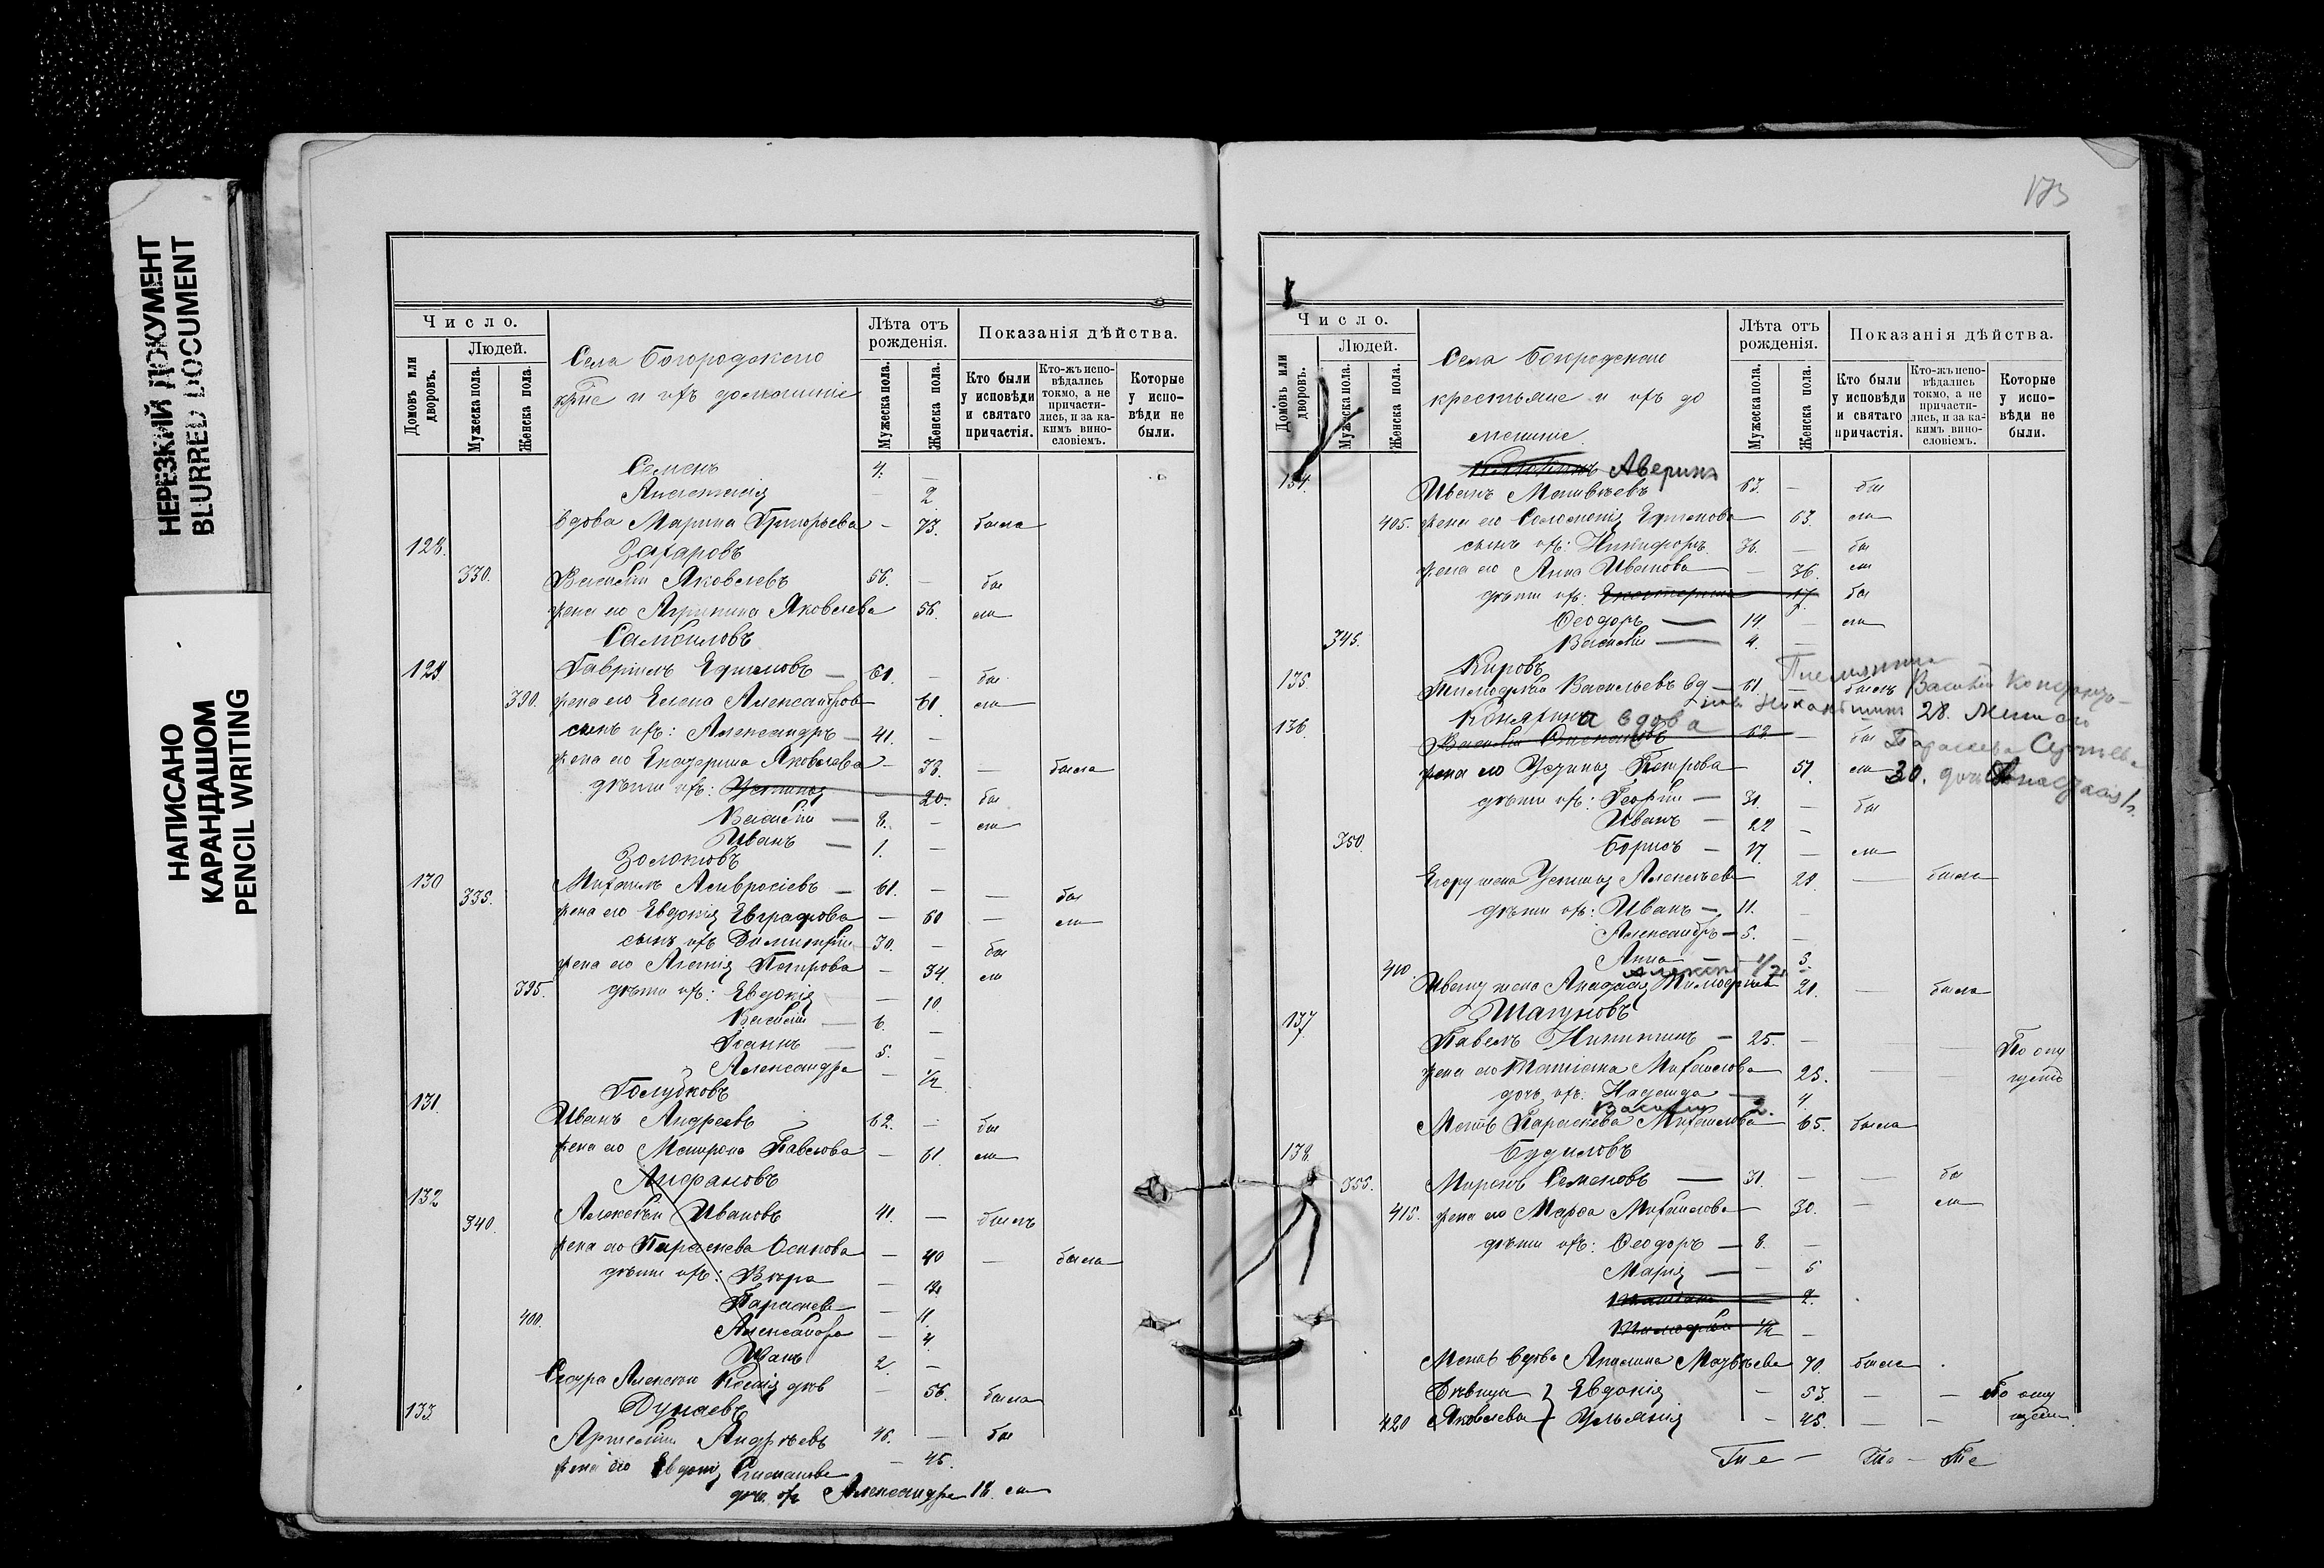 НЕРЕЗКИЙ ДОКУМЕНТ
BLURRED DOCUMENT
НАПИСАНО
КАРАНДАШОМ
PENCIL WRITING
Число.
Людей.
Домовъ или дворовъ.
Мужеска пола.
Женска пола.
Села Богородскаго
и ихъ домашніе
Лѣта отъ рожденія.
Мужеска пола.
Женска пола.
Показанія дѣйства.
Кто были у исповѣди и святаго причастія.
Кто-жъ исповѣдались токмо, а не причастились, и за какимъ винословіемъ.
Которые у исповѣди не были.
Семенъ 4. —
Анастасія — 2
вдова Марина Григорьева — 73. была
128. Захаровъ
330. Василій Яковлевъ 56. — бы
жена его Агрипина Яковлева 56. ла
Самойловъ
129. Гавріилъ Ефимовъ — 61. — бы
390. жена его Елена Александрова 61. ла
сынъ ихъ: Александръ — 41. —
жена его Екатерина Яковлева — 38. — была
дѣти ихъ: Устинія — 20. бы
Василій — 8. — ли
Иванъ — 1. —
Золотовъ
130 335. Михаилъ Амвросіевъ — 61. — — бы
жена его Евдокія Евграфова — 60 — ли
сынъ ихъ Димитрій 30. — бы
жена его Агапія Петрова — 34. ли
395. дѣти ихъ: Евдокія — 10.
Василій — 6. —
Іоаннъ — 5. —
Александра — 1/2
Голубковъ
131. Иванъ Андреевъ 62. — бы
жена его Матрона Павлова — 61. ли
Анфановъ
132 340. Алексѣй Ивановъ 41. — былъ
жена его Параскева Осипова — 40 — была
дѣти ихъ: Вѣра — 12
Параскева — 11.
400. Александра — 4.
Иванъ 2. —
Сестра Алексѣя Ксенія дѣв — 56. была
133. Дунаевъ
Артемій Андреевъ 46. — бы
жена его Евдокія Степанова — 45.
дочь ихъ Александра 18. ли
173
Число.
Людей.
Домовъ или дворовъ.
Мужеска пола.
Женска пола.
Села Богородскаго
крестьяне и ихъ до
машніе.
Лѣта отъ рожденія.
Мужеска пола.
Женска пола.
Показанія дѣйства.
Кто были у исповѣди и святаго причастія.
Кто-жъ исповѣдались токмо, а не причастились, и за какимъ винословіемъ.
Которые у исповѣди не были.
Аверинъ
134. Иванъ Матвѣевъ 63. — бы
405. жена его Соломонія Ефимова 63. ли
сынъ ихъ: Никифоръ 36. — бы
жена его Анна Иванова — 36. ли
дѣти ихъ: Екатерина 17. бы
Ѳеодоръ — 14. — ли
345. Василій — 4. —
Кировъ
135. Тимофей Васильевъ вд — 61. — былъ
Племянникъ
Василій
28. Жена его
Параскева Сергѣева
30. дочь Анастасія 1/2
136. Коняхина вдова
Василій 62. — бы
жена его Устинія Петрова 57. ли
дѣти ихъ: Георгій — 31. — бы
Иванъ — 22 —
350. Борисъ — 17. — ли
Егору жена Устинія Алексѣева 28. — была
дѣти ихъ: Иванъ — 11. —
Александръ — 5. —
410. Анна — 3.
Алексѣй 1/2
Ивану жена Анастасія Тимофеева 20. — была
137. Шагуновъ
Павелъ Никитинъ — 25. — — — По опу
жена его Татіана Михайлова 25. — — щенію
дочь ихъ: Надежда — 4.
Василій 2.
Мать Параскева Михайлова 65. была
138. Будиловъ
355. Миронъ Семеновъ — 31. — — бы
415. жена его Марѳа Михайлова 30. — ли
дѣти ихъ: Ѳеодоръ — 8. —
Марія — — 5
Татіана 2.
Тимофей 1/2 —
Мать вдова Акилина Матвѣева 70. была
Дѣвицы Евдокія — 53. — — По опу
420 Яковлевы Ульянія — 45. — — щенію.